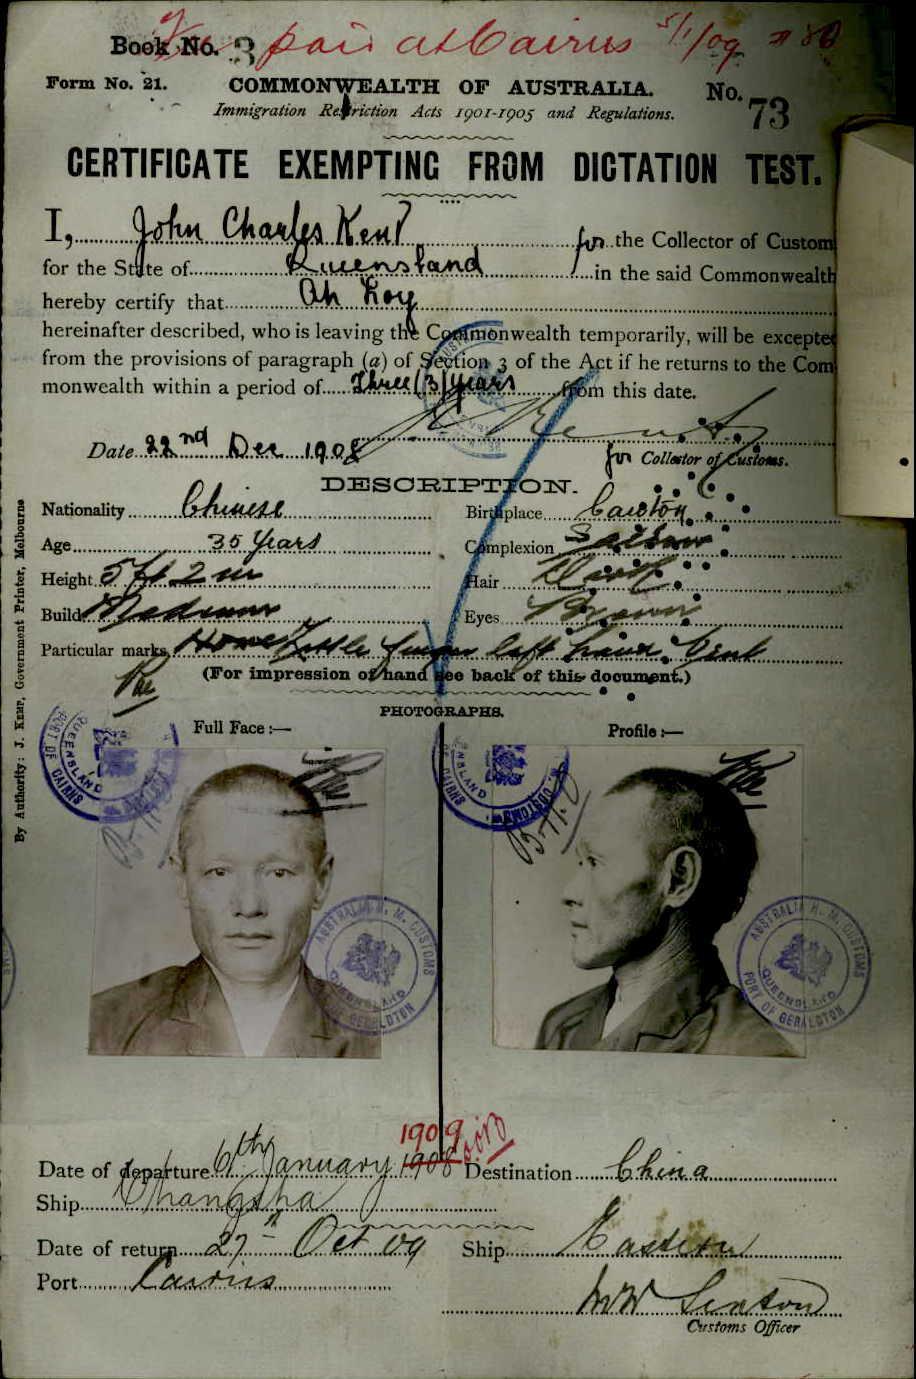 Book No. 3 paid at Cairns 5/1/09
Form No. 21. COMMONWEALTH OF AUSTRALIA. No. 73
Immigration Restriction Acts 1901-1905 and Regulations.
CERTIFICATE EXEMPTING FROM DICTATION TEST.
I, John Charles Kent for the Collector of Custom
for the State of Queensland in the said Commonwealth
hereby certify that Ah Hoy
hereinafter described, who is leaving the Commonwealth temporarily, will be excepted
from the provisions of paragraph (a) of Section 3 of the Act if he returns to the Com
monwealth within a period of Three (3) years from this date.
Date 22nd Dec 1908
for Collector of Customs.
DESCRIPTION.
Nationality Chinese Birthplace Canton
Age 35 Years Complexion Sallow
Height 5 ft 2 in Hair Dark
Build Medium Eyes Brown
Particular marks Little finger left hand bent
(For impression of hand see back of this document.)
PHOTOGRAPHS.
Full Face:— Profile:—
QUEENSLAND
PORT OF CAIRNS
QUEENSLAND
OF CAIRNS
CUSTOMS
AUSTRALIA H. M. CUSTOMS
QUEENSLAND
OF GERALDTON
AUSTRALIA H. M. CUSTOMS
QUEENSLAND
PORT OF GERALDTON
1909
Date of departure 6th January 1908 Destination China
Ship Changsha
Date of return 27th Oct 09 Ship Eastern
Port Cairns
Customs Officer
By Authority: J. Kemp, Government Printer, Melbourne